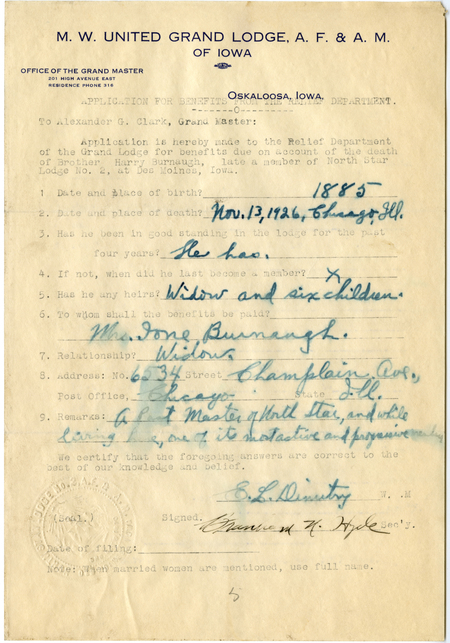 M. W. UNITED GRAND LODGE, A. F. & A. M.
OF IOWA
OFFICE OF THE GRAND MASTER
201 HIGH AVENUE EAST
RESIDENCE PHONE 316
OSKALOOSA, IOWA,
APPLICATION FOR BENEFITS FROM THE RELIEF DEPARTMENT.
To Alexander G. Clark, Grand Master:
Application is hereby made to the Relief Department
of the Grand Lodge for benefits due on account of the death
of Brother Harry Burnaugh, late a member of North Star
Lodge No. 2, at Des Moines, Iowa.
1 Date and place of birth? 1885
2. Date and place of death? Nov. 13, 1926, Chicago, Ill.
3. Has he been in good standing in the lodge for the past
four years? He has.
4. If not, when did he last become a member? X
5. Has he any heirs? Widow and six children.
6. To whom shall the benefits be paid?
Mrs. Ione, Burnaugh.
7. Relationship? Widow
8. Address: No. 6534 Street Champlain Ave.,
Post Office, Chicago State Ill.
9. Remarks: A Past Master of North Star, and while
living here, one of its most active and progressive members
We certify that the foregoing answers are correct to the
best of our knowledge and belief.
E. L. Dimitry W. M
(Seal.) Signed. N. Hyde Sec'y.
Date of filing:
Note: When married women are mentioned, use full name.
5